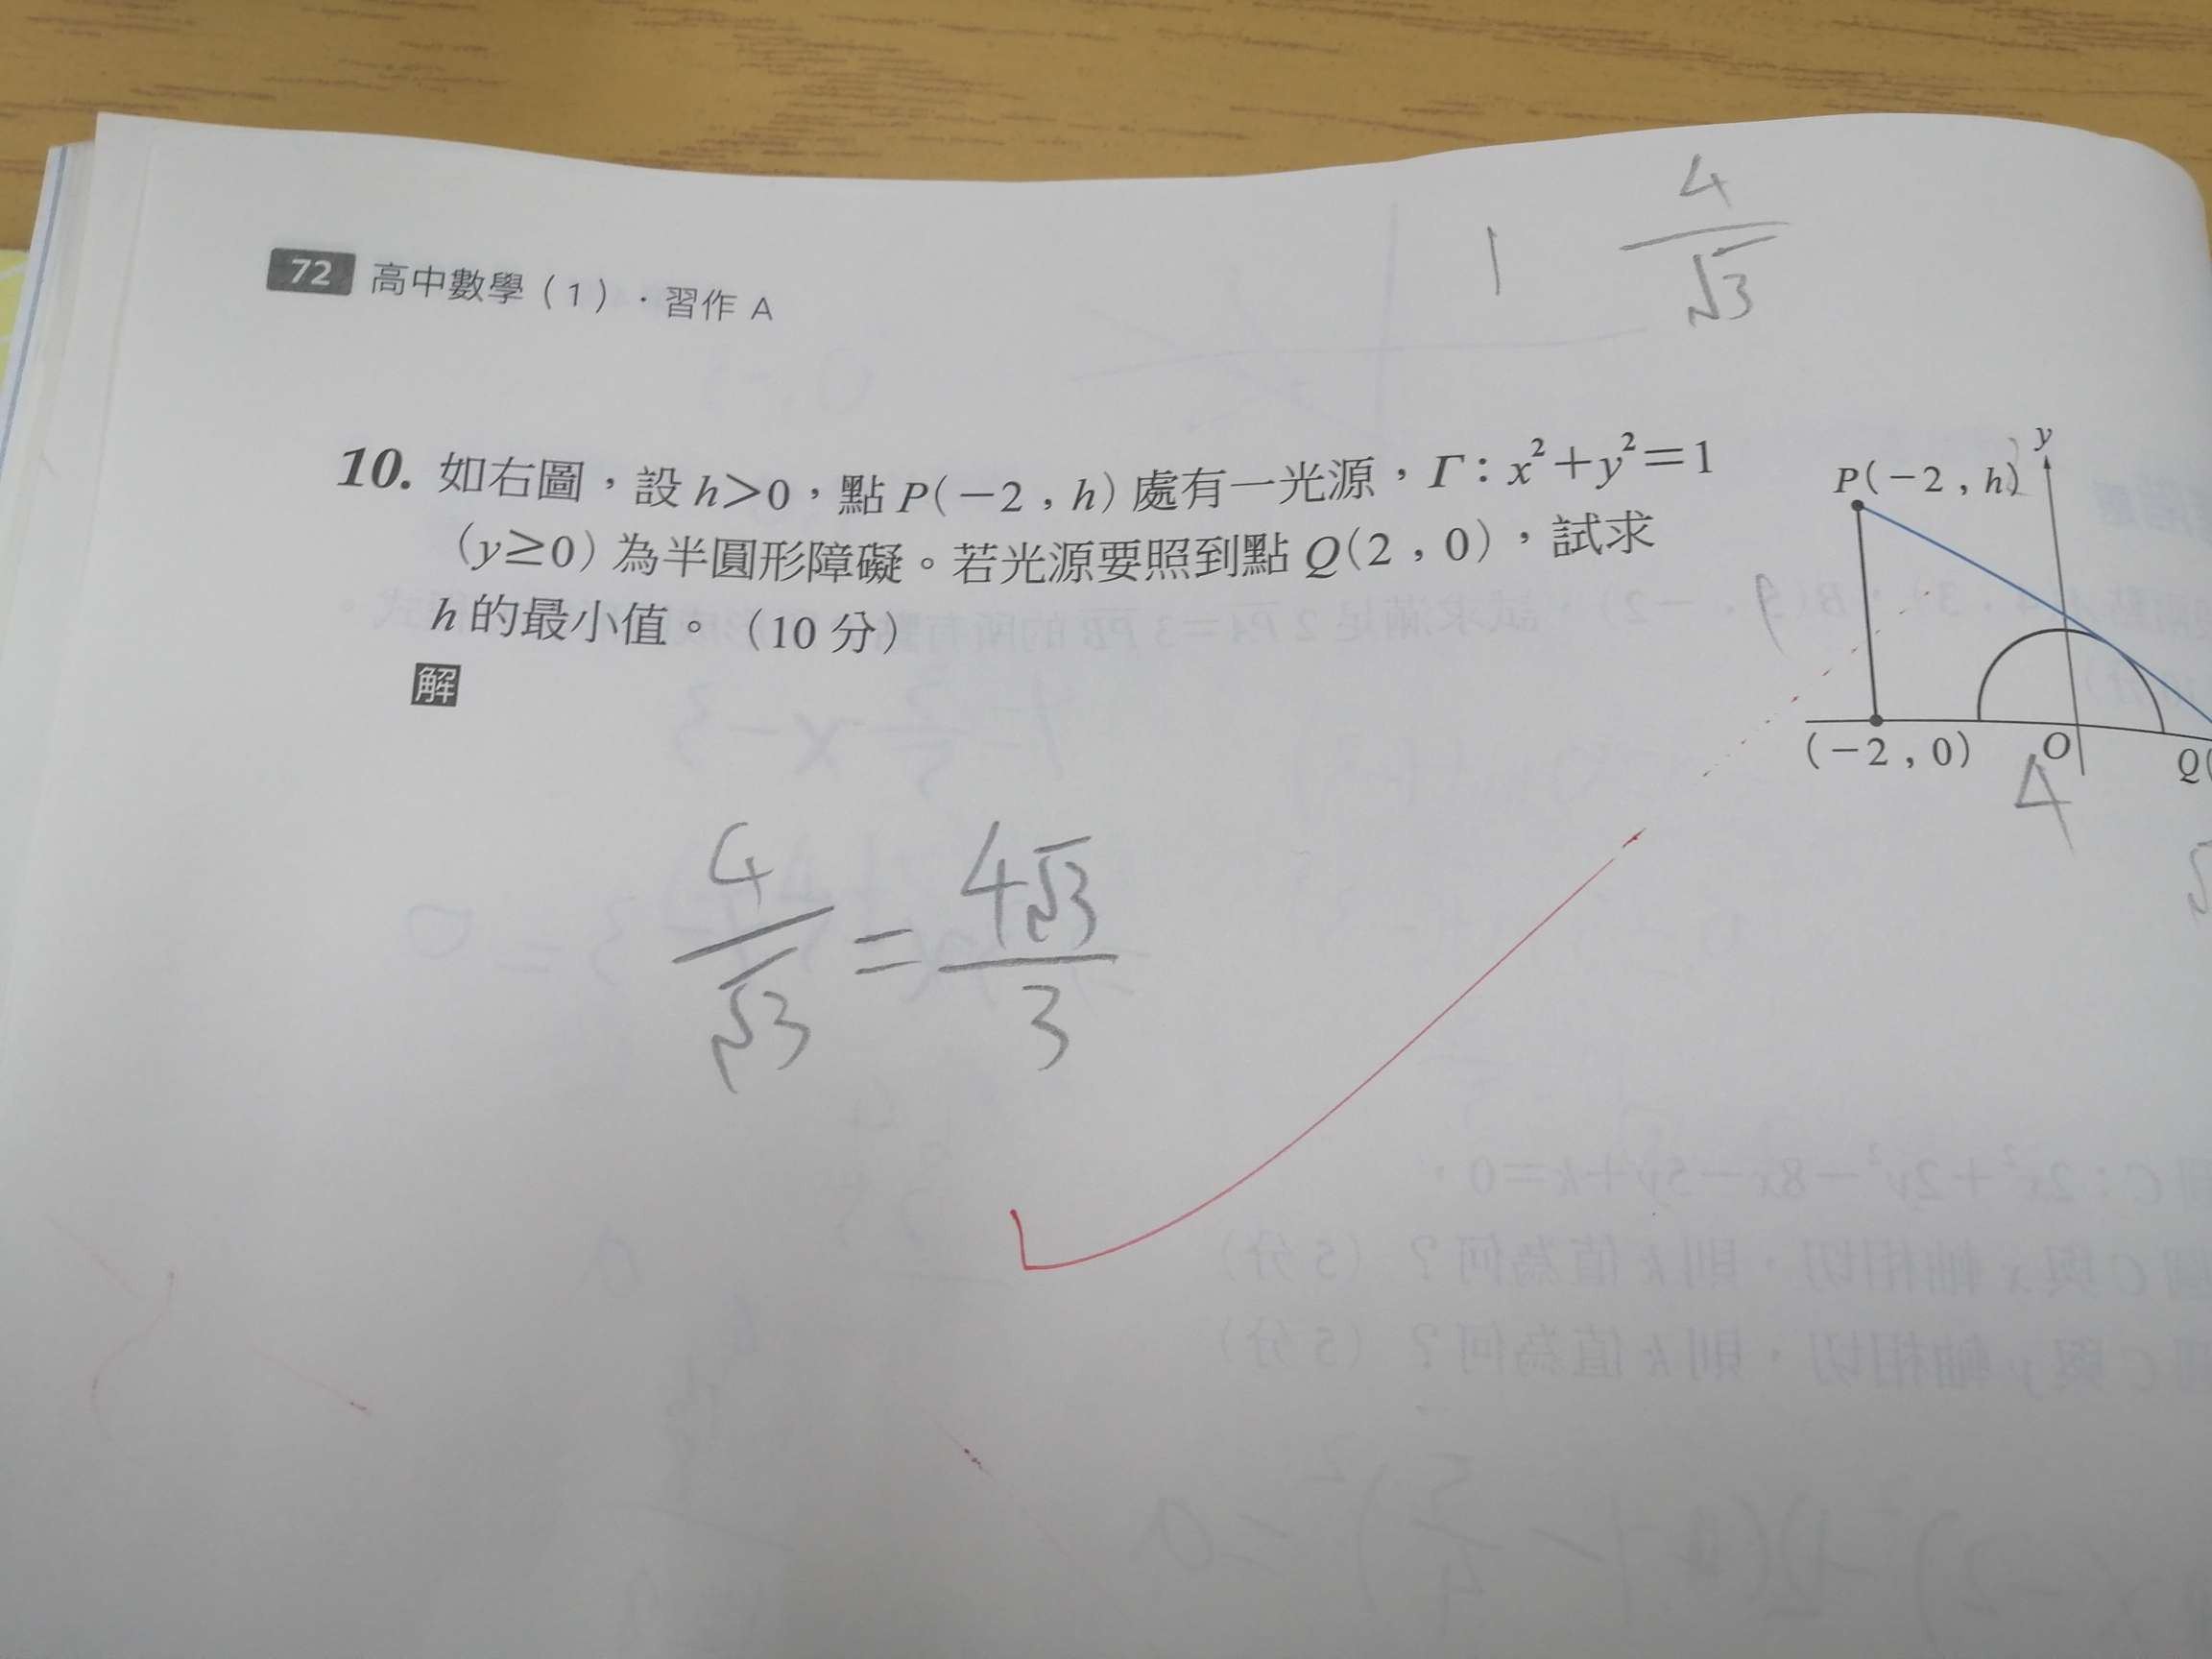 1 4/√3
72 高中數學(1)·習作 A
10. 如右圖,設 h>0,點 P(−2,h) 處有一光源,Γ:x²+y²=1
(y≥0) 為半圓形障礙。若光源要照到點 Q(2,0),試求
h 的最小值。(10 分)
P(−2,h)
y
(−2,0)
O
Q(
4
解
4/√3 = 4√3/3